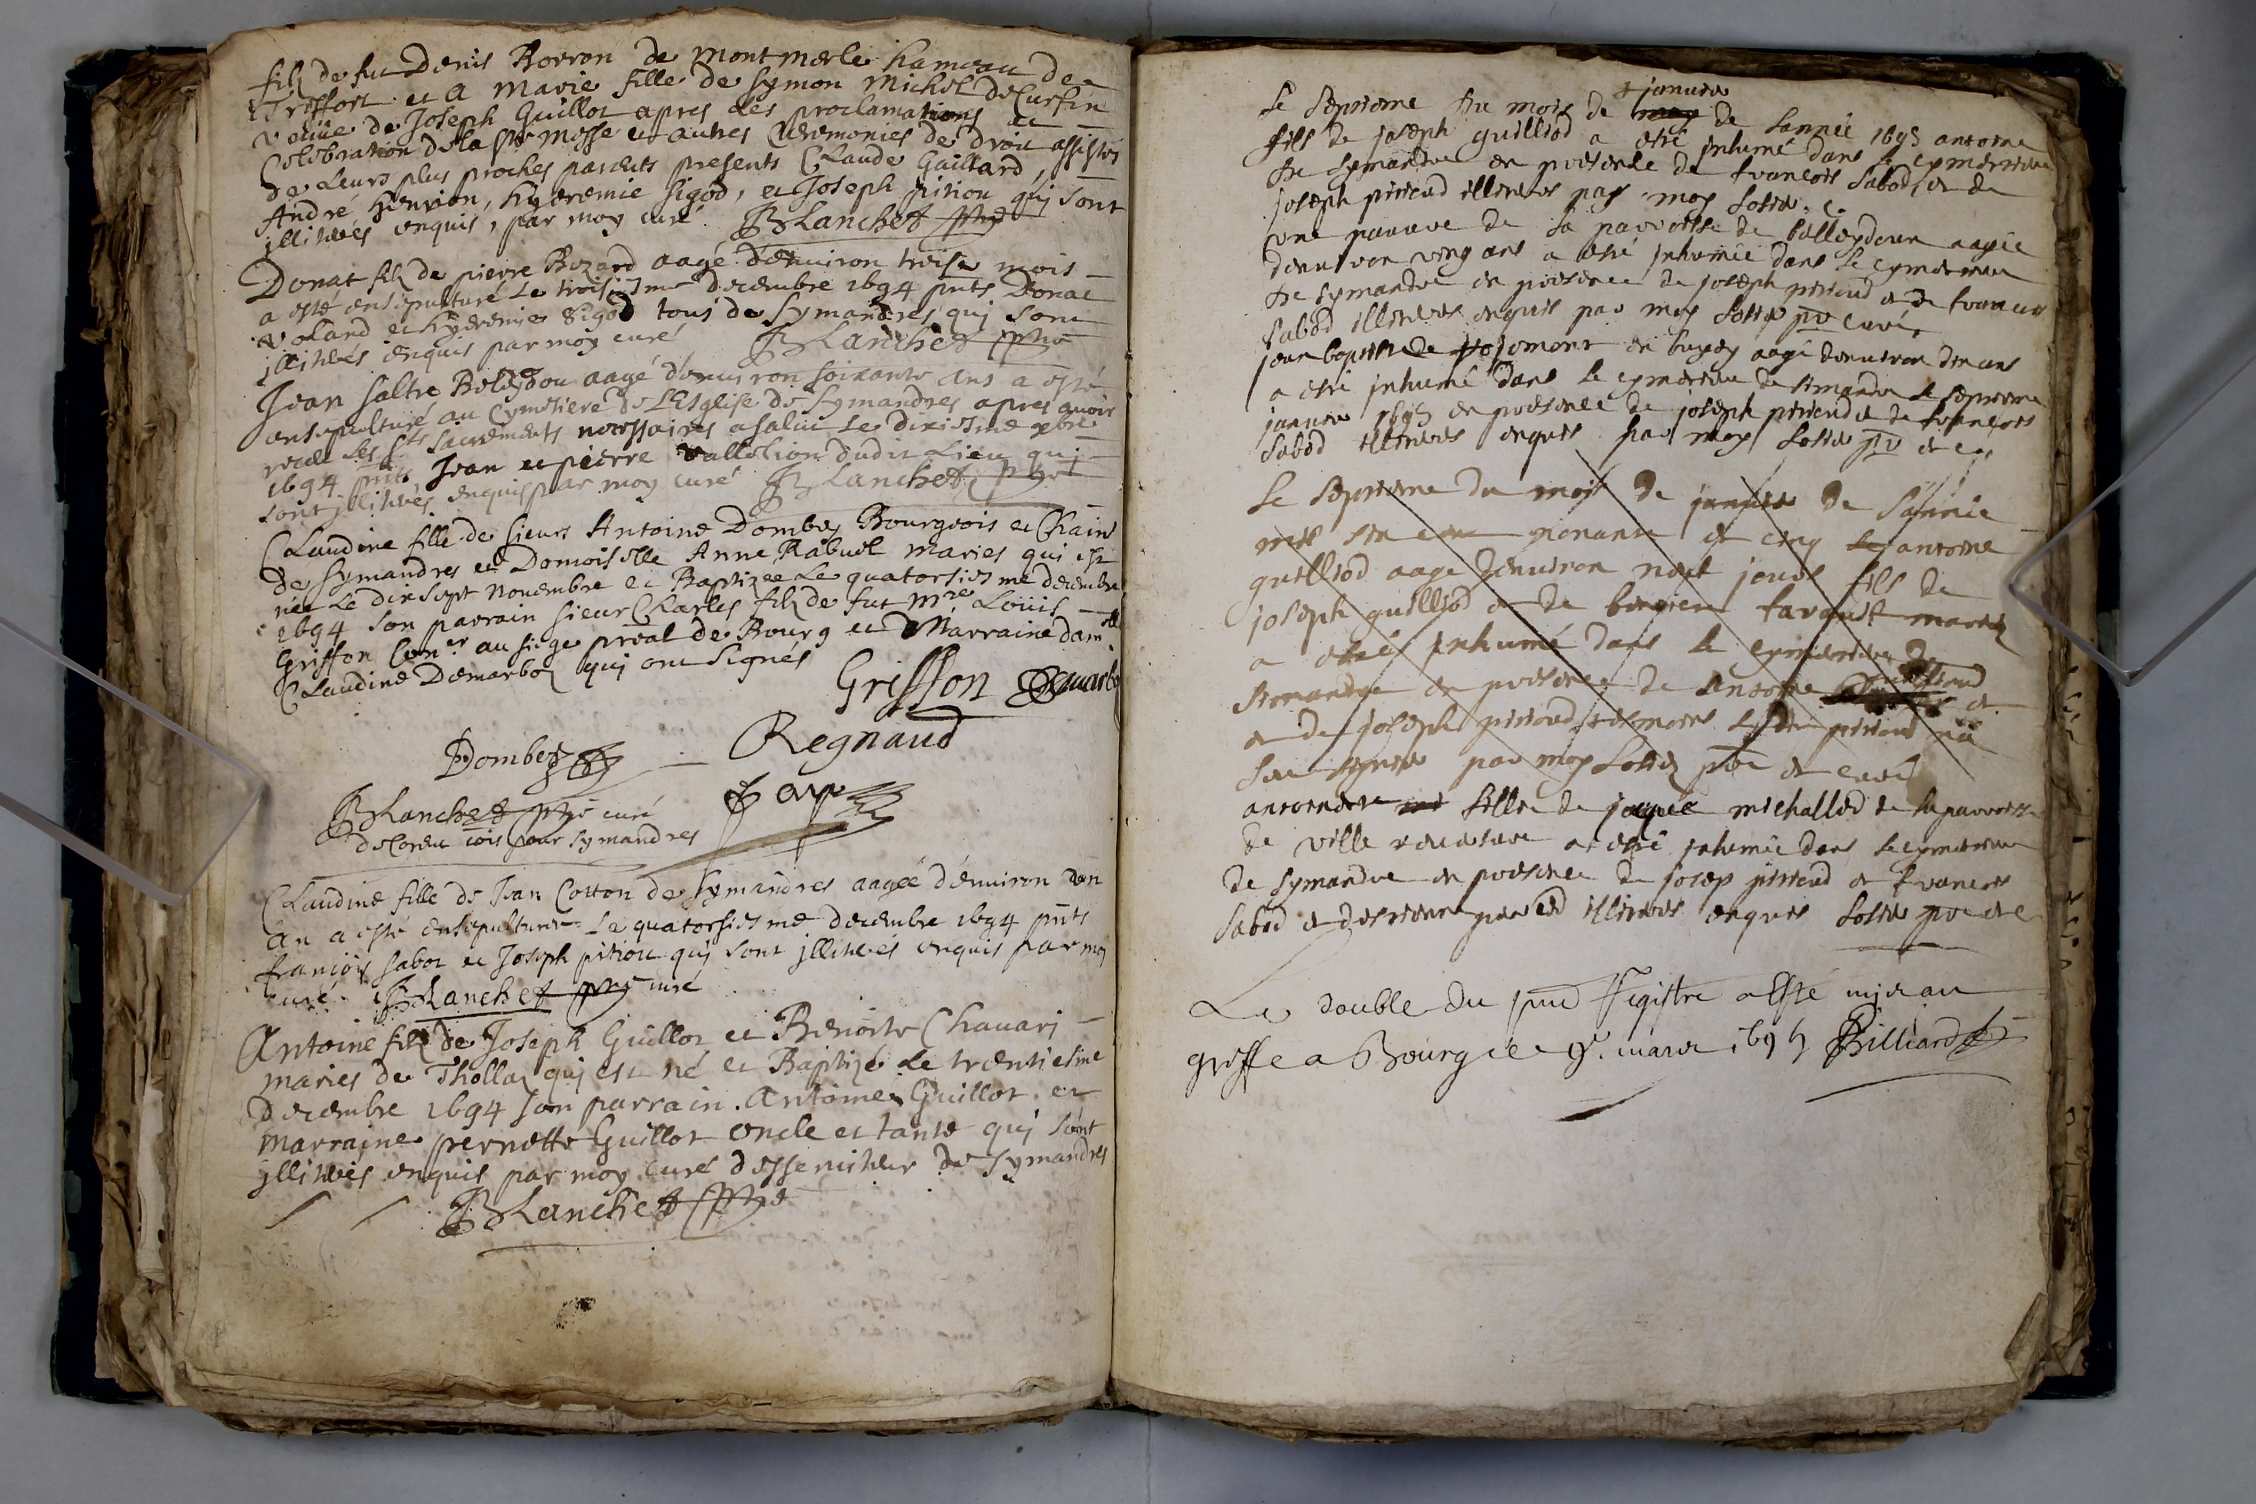 filz de fut Denis Borron de Montmerle hameau de
Treffort et a Marie fille de Symon Michel de Cursin
veüüe de Joseph Guillot apres les proclamations et
Celebration de la ste Messe et autres Ceremonies de droit assistés
de Leurs plus proches parents presents Claude Gaillard,
André Henrion, Hyeremie Sigod, et Joseph pition qui sont
jllitres enquis, par moy curé. Blanchet ptre
Donat filz de pierre Bozard aagé d'enuiron treise mois
a esté ensepulturé Le troisiesme decembre 1694 pnts Donat
Voland et hyeremie Sigod tous de Symandres qui sont
jllitres enquis par moy curé Blanchet ptre
Jean saltre Beleydou aagé d'enuiron soixante ans a esté
ensepulturé au Cymetiere de L'Esglise de Symandres apres auoir
receu Les sts sacrements necessaires a salut Le dixiesme xbre
1694 pnts Jean et pierre vallotion dudit Lieu qui
sont jllitres enquis par moy curé Blanchet ptre
Claudine fille de sieurs Antoine Dombey Bourgeois et Chain
de Symandres et Domoiselle Anne Rabuel maries qui est
née Le dix sept Novembre et Baptizee Le quatorsiesme decembre
1694 son parrain sieur Charles filz de fut mre Loüis
Griffon Coner au siege preal de Bourg et Marraine damlle
Claudine Demarboz qui ont signés
Griffon Demarbo
Dombey Regnaud
Blanchet ptre curé
de Corueissiat pour Symandres
Claudine fille de Jean Cotton de Symandres aagée d'enuiron dun
an a esté ensepulturée Le quatorsiesme decembre 1694 pnts
françois sabot et Joseph pition qui sont jllitres enquis par moy
curé. Blanchet ptre curé
Antoine filz de Joseph Guillot et Benoite Chavari
maries de Tholla qui est né et Baptizé Le trentiesme
decembre 1694 son parrain. Antoine Guillot. et
marraine pernette Guillot oncle et tante qui sont
jllitres enquis par moy curé desseruiteur de Symandres
Blanchet ptre
januier
Le septieme du mois de may de Lannée 1695 antoine
fils de joseph guilliod a esté jnhumé dans le cymetiere
de symandre en presence de francois Sabod et de
joseph pitioud illiteres par moy
une pauure de la parroisse de belleydoux aagée
denuiron ving ans a esté jnhumée dans le cymetiere
de symandre en presence de joseph pitioud et de francois
Sabod illiteres enquis par moy ptre curé
jean baptiste de en bugey aagé denuiron dix ans
a esté jnhumé dans le cymetiere de simandre le septieme
januier 1695 en presence de joseph pitioud et de francois
Sabod illiteres enquis par moy ptre et c
Le septieme du mois de januier de Lannée
mil six cens nonante et cinq antoine
guilliod aage denuiron neuf jours fils de
joseph guilliod et de benoiere favaust maries
a esté jnhumé dans le cymetiere de
Simandre en presence de antoine guilliod et
et de joseph pitioud tesmoins
par moy ptre et curé
antoinette fillie de jaque michallod de la parroisse
de ville reuersure a esté jnhumée dans le cymetiere
de symandre en presence de josep pitioud et francois
Sabod illiteres enquis ptre et c
Le double du pnt Registre a Esté mis au
greffe a Bourg ce 9e. mars 1695 Billiard